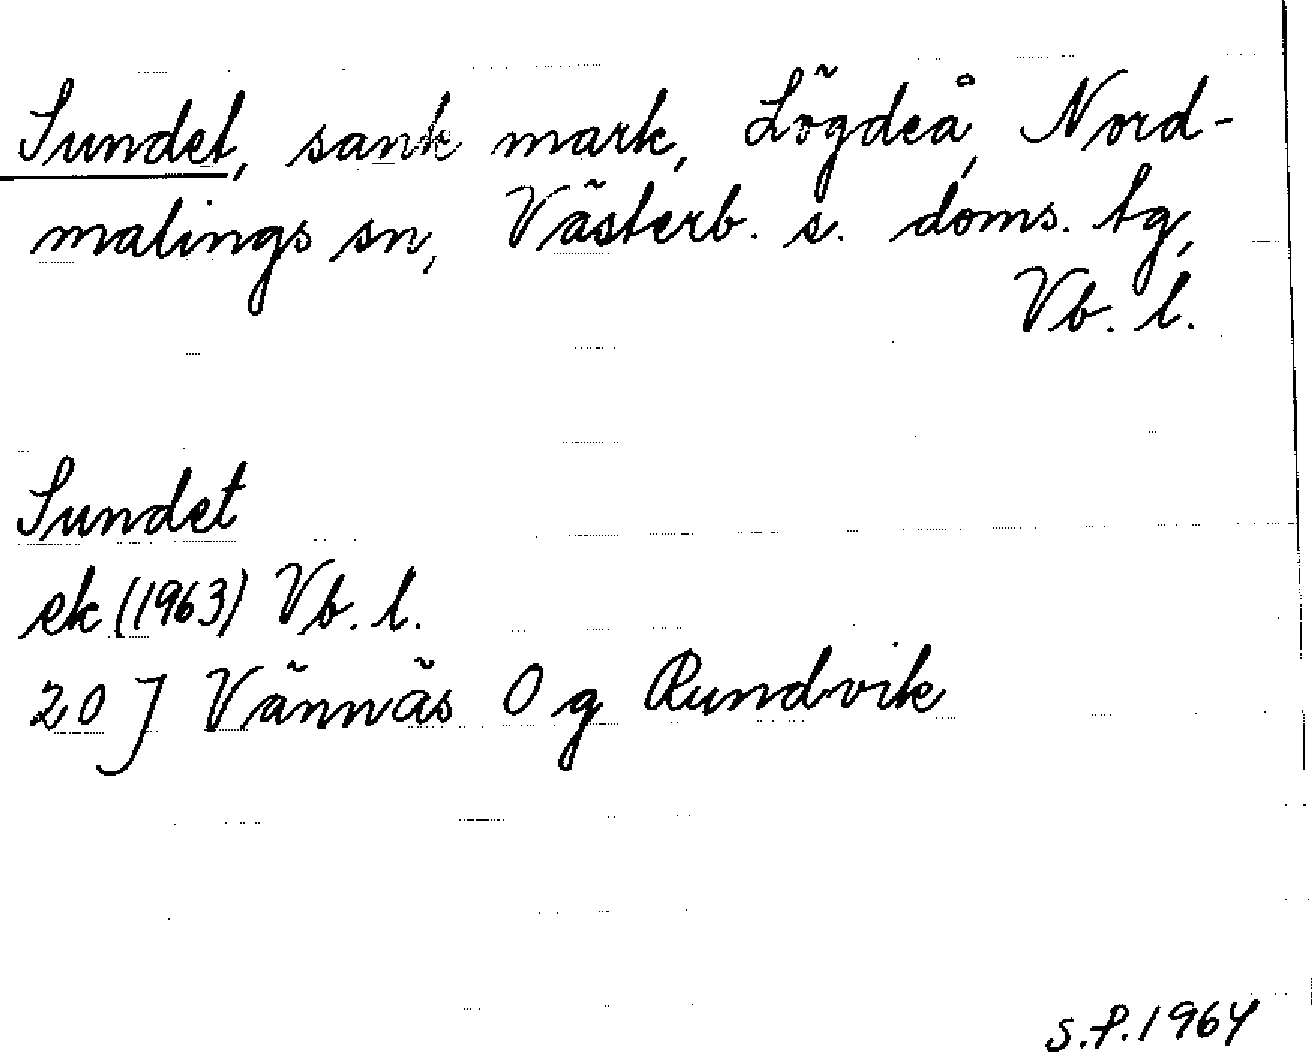 Sundet, sank mark, Lögdeå, Nord-
malings sn, Västerb. s. doms. tg,
Vb. l.
Sundet
ek (1963) Vb. l.
20 J Vännäs O g Rundvik
S.P. 1964